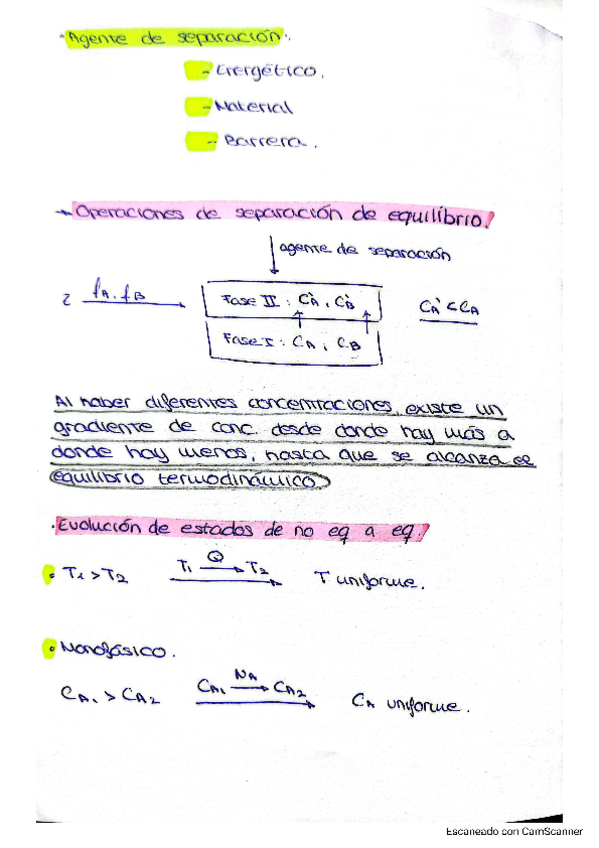 · Agente de separación:
- Energético.
- Material
- Barrera.
→ Operaciones de separación de equilibrio!
↓ agente de separación
fA, fB →
Fase II : CÀ, CB̀
CÀ < CA
Fase I : CA, CB
Al haber diferentes concentraciones, existe un
gradiente de conc. desde donde hay más a
donde hay menos, hasta que se alcanza el
equilibrio termodinámico
· Evolución de estados de no eq a eq.
· T1 > T2 T1 —Q→ T2 T uniforme.
· Monofásico.
CA1 > CA2 CA1 —NA→ CA2 CA uniforme.
Escaneado con CamScanner